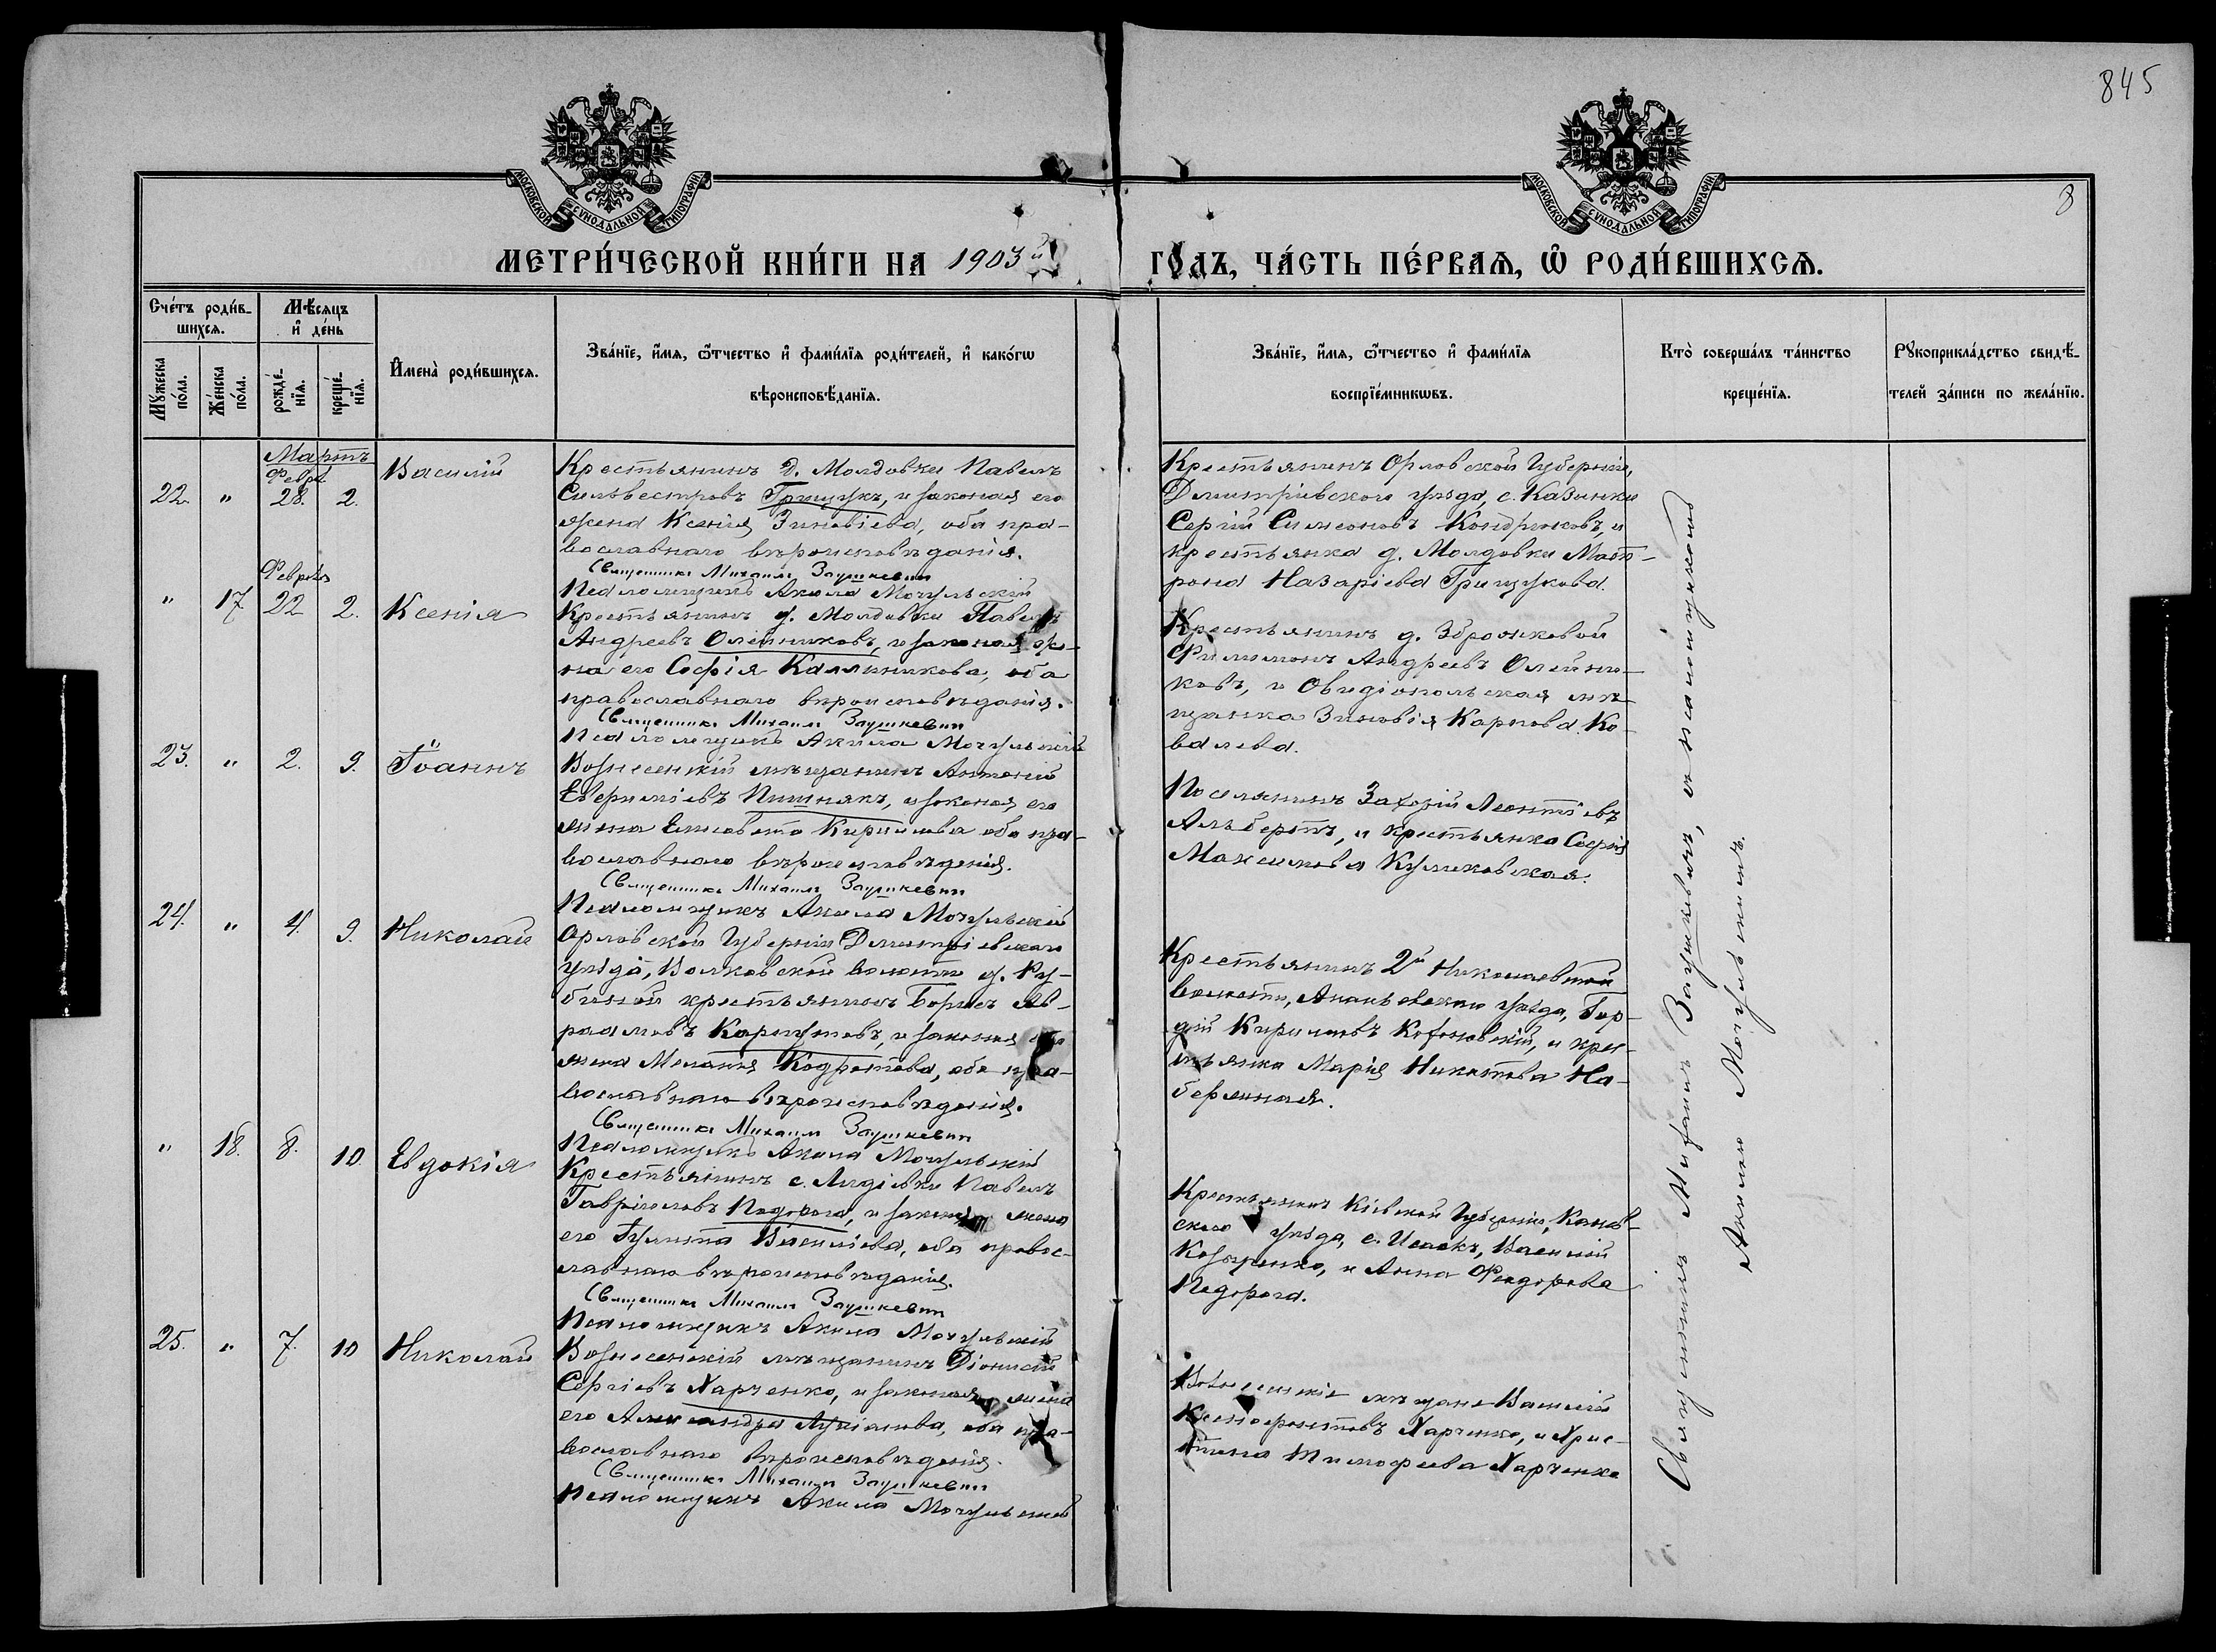 845
8
МОСКОВСКОЙ СѴНОДАЛЬНОЙ ТИПОГРАФІИ
МОСКОВСКОЙ СѴНОДАЛЬНОЙ ТИПОГРАФІИ
МЕТРИ́ЧЕСКОЙ КНИ́ГИ НА 1903й ГО́ДЪ, ЧА́СТЬ ПЕ́РВАѦ, Ѡ҆ РОДИ́ВШИХСѦ.
Сче́тъ роди́в-
шихсѧ.
Мꙋ́жеска
по́ла.
Же́нска
по́ла.
Мѣ́сѧцъ
и҆ де́нь
рожде́-
нїѧ.
креще́-
нїѧ.
И҆мена̀ роди́вшихсѧ.
Зва́нїе, и҆́мѧ, ѻ҆́тчество и҆ фами́лїѧ роди́телей, и҆ како́гѡ
вѣроисповѣ́данїѧ.
Зва́нїе, и҆́мѧ, ѻ҆́тчество и҆ фами́лїѧ
воспрїе́мникѡвъ.
Кто̀ соверша́лъ та́инство
креще́нїѧ.
Рꙋкоприкла́дство свидѣ́-
телей за́писи по жела́нїю.
Мартъ
Февр.
22. " 28. 2. Василій
Крестьянинъ д. Молдовки Павелъ
Сильвестровъ Грищукъ, и законная его
жена Ксенія Зиновіева, оба пра-
вославнаго вѣроисповѣданія.
Священникъ Михаилъ Заушкевич
Псаломщикъ Акила Мочульскій
Крестьянинъ Орловской Губерніи,
Дмитріевского уѣзда, с. Казинки
Сергій Симеоновъ, и
крестьянка д. Молдовки Мат-
рона Назаріева Грищукова.
" 17 22 2. Ксенія
Крестьянинъ д. Молдовки Павелъ
Андреевъ Олейниковъ, и законная же-
на его Софія Каллиникова, оба
православнаго вѣроисповѣданія.
Священникъ Михаилъ Заушкевич
Псаломщикъ Акила Мочульскій
Крестьянинъ д.
Филимонъ Андреевъ Олейни-
ковъ, и Овидіопольская мѣ-
щанка Зиновія Карпова Ко-
валева.
23. " 2. 9. Іоаннъ
Вознесенскій мѣщанинъ Антоній
Евфиміевъ Пишнякъ, и законная его
жена Елисавета Кириллова оба пра-
вославнаго вѣроисповѣданія.
Священникъ Михаилъ Заушкевич
Псаломщикъ Акила Мочульскій
Поселянинъ Захарій Леонтіевъ
Альбертъ, и крестьянка Софія
Максимова Куликовская.
24. " 4. 9. Николай
Орловской Губерніи Дмитріевскаго
уѣзда, Волковской волости д. Ру-
биной крестьянинъ Борисъ Ав-
рамовъ, и законная его
жена Меланія Кодратова, оба пра-
вославнаго вѣроисповѣданія.
Священникъ Михаилъ Заушкевич
Псаломщикъ Акила Мочульскій
Крестьянинъ 2й Николаевской
волости, Ананьевскаго уѣзда, Гор-
дій Кириловъ, и крес-
тьянка Марія Никитова На-
бережная.
" 18. 8. 10. Евдокія
Крестьянинъ с. Лидіевки Павелъ
Гавріиловъ Подорога, и законная жена
его Іулита Василіева, оба правос-
лавнаго вѣроисповѣданія.
Священникъ Михаилъ Заушкевич
Псаломщикъ Акила Мочульскій
Крестьянинъ Кіевской Губерніи, Канев-
скаго уѣзда, с., Василій
и Анна Феодорова
Подорога.
25. " 7. 10 Николай
Вознесенскій мѣщанинъ Діонисій
Сергіевъ Харченко, и законная жена
его Александра Лукіанова, оба пра-
вославнаго вѣроисповѣданія.
Священникъ Михаилъ Заушкевич
Псаломщикъ Акила Мочульскій
Вознесенскіе мѣщане Василій
Ксенофонтовъ Харченко, и Хрис-
тина Тимофеева Харченко
Священникъ Михаилъ Заушкевичъ, съ псаломщикомъ
Акилою Мочульскимъ.